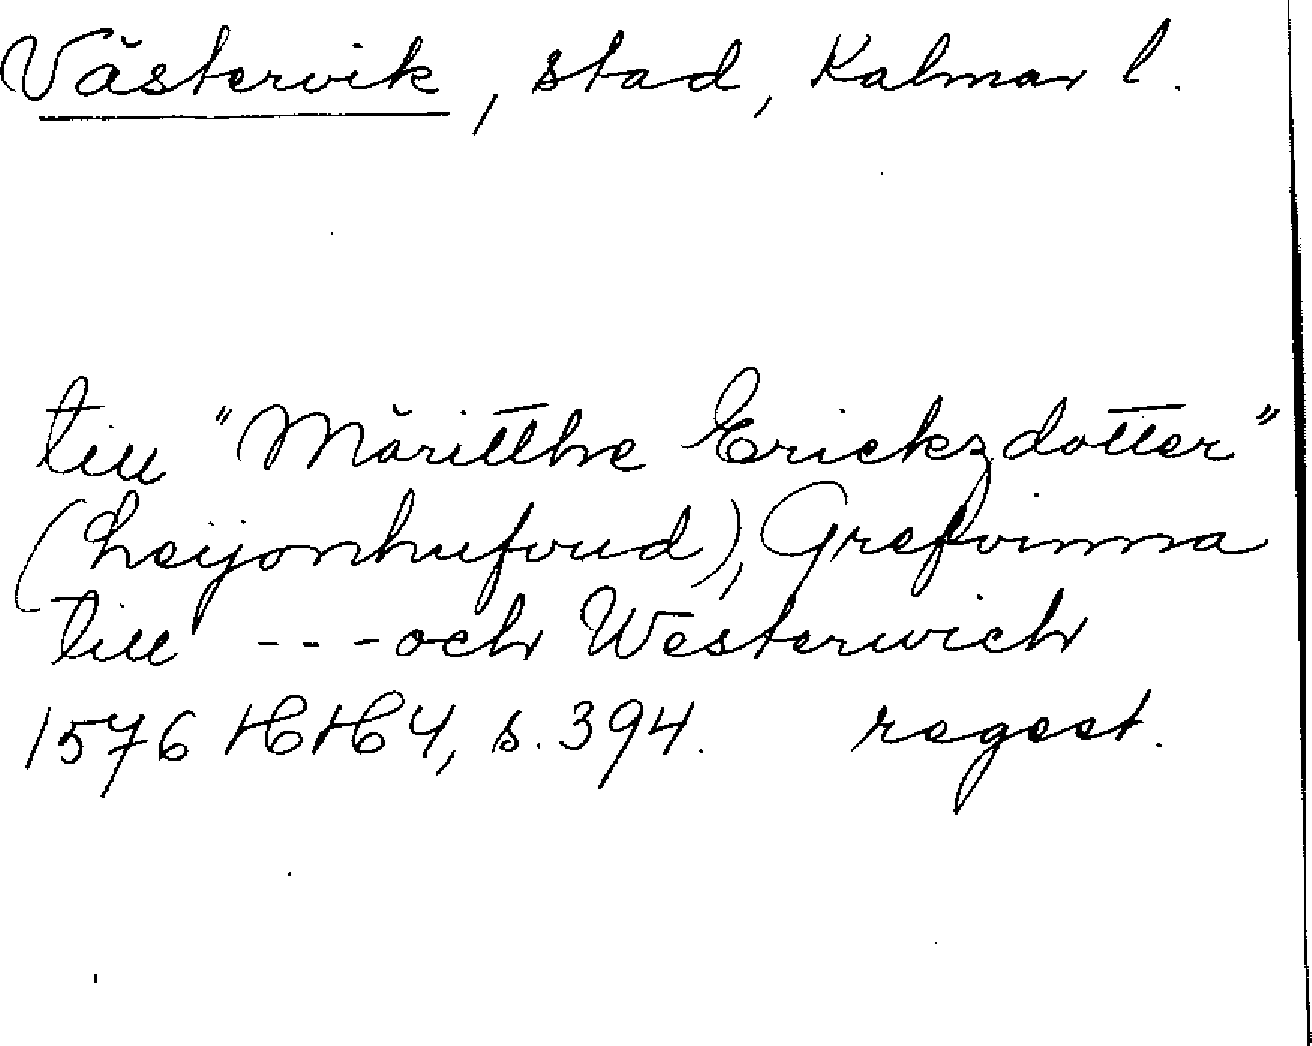 Västervik, stad, Kalmar l.
till "Märitthe Erickzdotter"
(Leijonhufvud), Grefvinna
till --- och Westerwich
1576 HH 4, s. 394. regest.